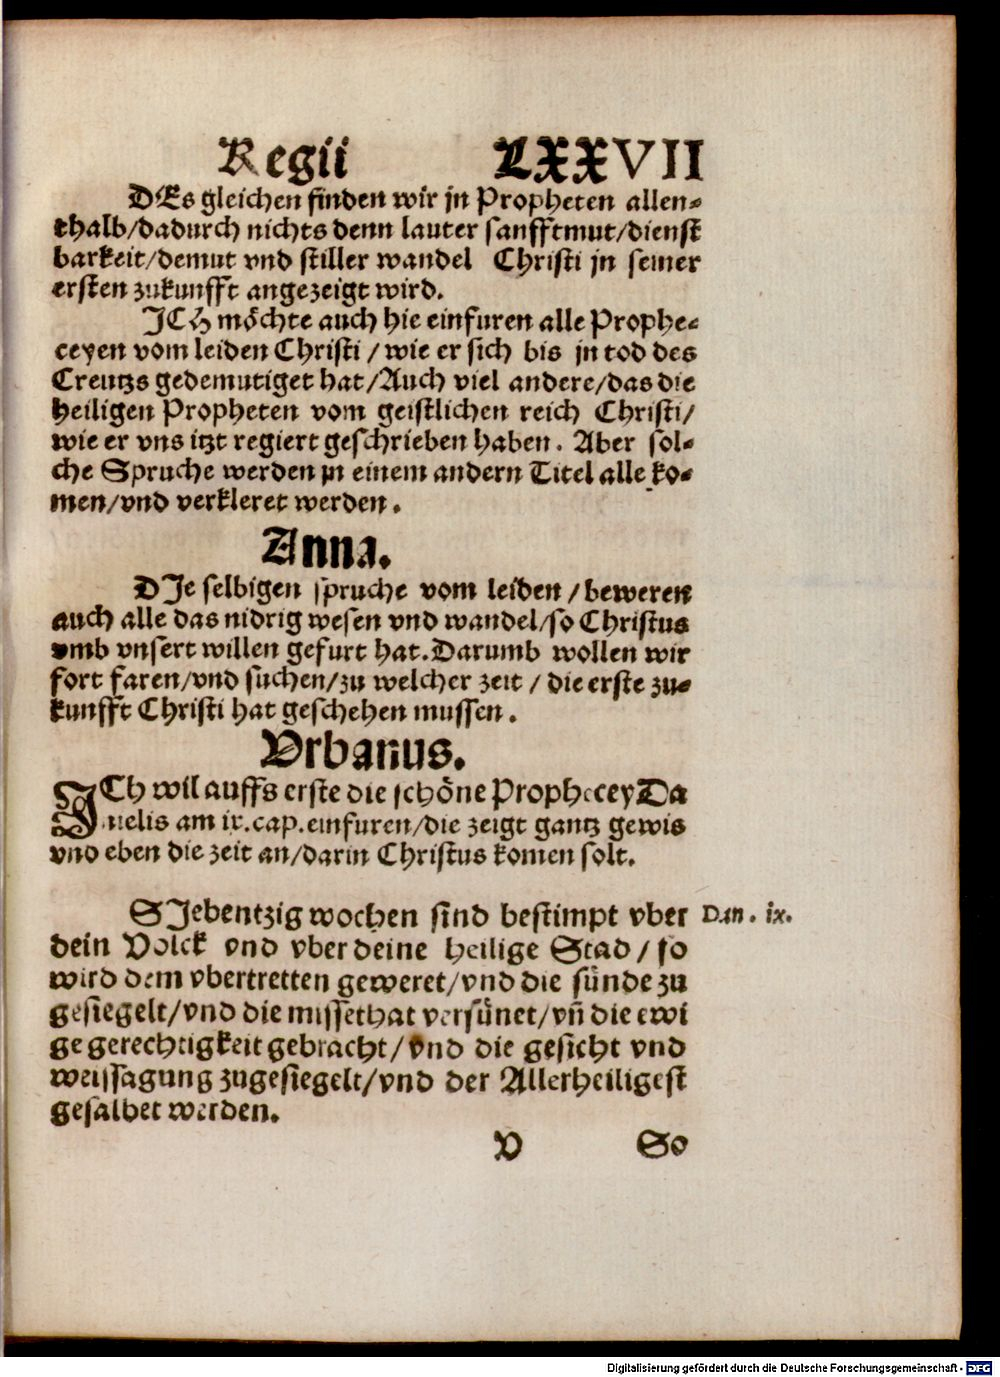 Regii LXXVII
DEs gleichen finden wir jn Propheten allen-
thalb/dadurch nichts denn lauter sanfftmut/dienst
barkeit/demut vnd stiller wandel Christi jn seiner
ersten zukunfft angezeigt wird.
JCH möchte auch hie einfuren alle Prophe-
ceyen vom leiden Christi / wie er sich bis jn tod des
Creutzs gedemutiget hat/Auch viel andere/das die
heiligen Propheten vom geistlichen reich Christi/
wie er vns itzt regiert geschrieben haben. Aber sol-
che Spruche werden jn einem andern Titel alle ko-
men/vnd verkleret werden.
Anna.
DJe selbigen spruche vom leiden / beweren
auch alle das nidrig wesen vnd wandel/so Christus
vmb vnsert willen gefurt hat. Darumb wollen wir
fort faren/vnd suchen/zu welcher zeit / die erste zu-
kunfft Christi hat geschehen mussen.
Vrbanus.
JCh wil auffs erste die schöne Prophecey Da
nielis am ix. cap. einfuren/die zeigt gantz gewis
vnd eben die zeit an/darin Christus komen solt.
SJebentzig wochen sind bestimpt vber Dan. ix.
dein Volck vnd vber deine heilige Stad / so
wird dem vbertretten geweret/vnd die sünde zu
gesiegelt/vnd die missethat versünet/vñ die ewi
ge gerechtigkeit gebracht/vnd die gesicht vnd
weissagung zugesiegelt/vnd der Allerheiligest
gesalbet werden.
V So
Digitalisierung gefördert durch die Deutsche Forschungsgemeinschaft - DFG